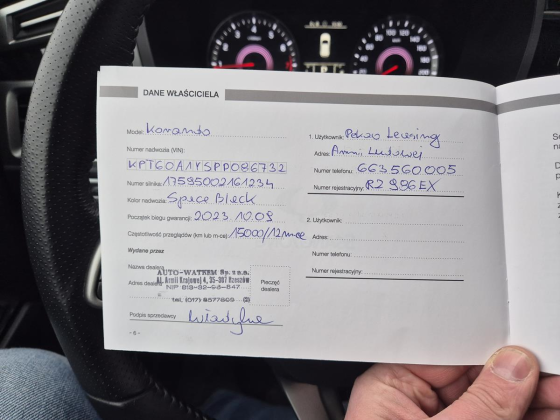 DANE WŁAŚCICIELA
Model: Korando
Numer nadwozia (VIN):
KPT60A1YSPP086732
Numer silnika: 17595002161234
Kolor nadwozia: Space Black
Początek biegu gwarancji: 2023.10.09
Częstotliwość przeglądów (km lub m-ce): 15000/12mce
Wydane przez
Nazwa dealera
AUTO-WATKEM Sp. z o.o.
Adres dealera
Al. Armii Krajowej 4, 35-307 Rzeszów
NIP 813-32-98-847
tel. (017) 8577809 (3)
Pieczęć
dealera
Podpis sprzedawcy
- 6 -
1. Użytkownik: Pekao Leasing
Adres: Armii Ludowej
Numer telefonu: 663560005
Numer rejestracyjny: RZ 996EX
2. Użytkownik:
Adres:
Numer telefonu:
Numer rejestracyjny: